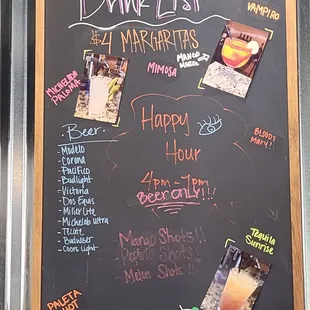 Drink List
VAMPIRO
$4 MARGARITAS
MANGO
MIMOSA
MICHELADA
PALOMA
Happy
Hour
4pm - 7pm
BEER ONLY!!!
BLOODY
MARY!
Beer
- Modelo
- Corona
- Pacifico
- Budlight
- Victoria
- Dos Equis
- Miller Lite
- Michelob Ultra
- Tecate
- Budwiser
- Coors Light
Mango Shots!!
Pepino Shots!
Melon Shots!!
Tequila
Sunrise
PALETA
SHOT